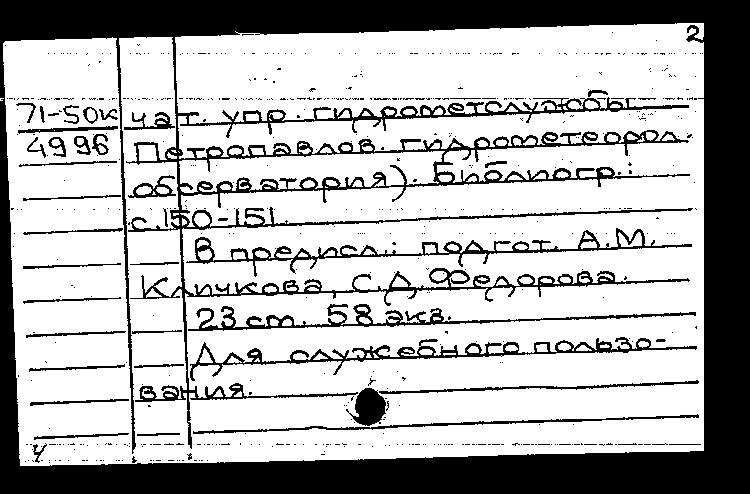 2
71-50к чат. упр. гидрометслужбы.
4996 Петропавлов. гидрометеорол.
обсерватория). Библиогр.:
с.150-151.
В предисл.: подгот. А.М.
Кличкова, С.Д. Федорова.
23 см. 58 экз.
Для служебного пользо-
вания.